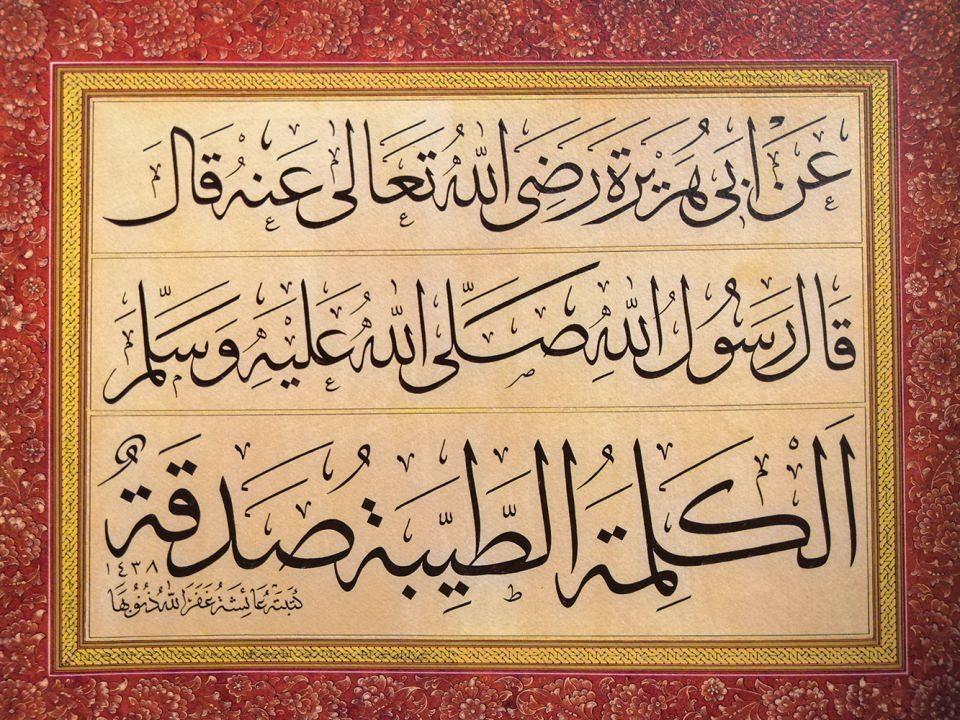 عَنْ اَبِي هُرَيْرَةَ رَضِيَ اللّٰهُ تَعَالٰى عَنْهُ قَالَ
قَالَ رَسُولُ اللّٰهِ صَلَّى اللّٰهُ عَلَيْهِ وَسَلَّمَ
اَلْكَلِمَةُ الطَّيِّبَةُ صَدَقَةٌ
١٤٣٨
كَتَبَتْهُ عَائِشَةُ غَفَرَ اللّٰهُ ذُنُوبَهَا